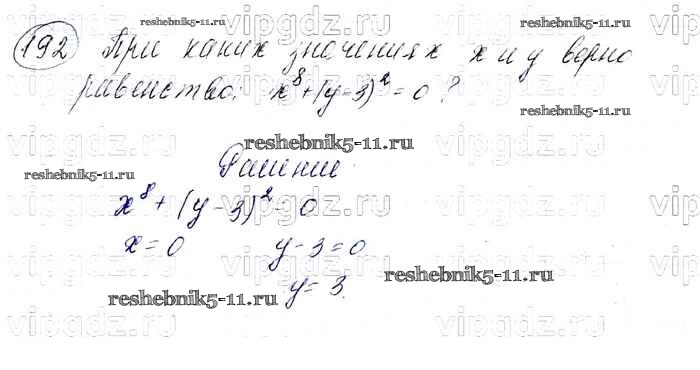 reshebnik5-11.ru
192 При каких значениях x и y верно
равенство: x⁸+(y-3)²=0?
vipgdz.ru vipgdz.ru vipgdz.ru
reshebnik5-11.ru
reshebnik5-11.ru
Решение.
reshebnik5-11.ru
vipgdz.ru vipgdz.ru vipgdz.ru
x⁸+(y-3)²=0
x=0 y-3=0
vipgdz.ru vipgdz.ru vipgdz.ru
reshebnik5-11.ru
y=3.
reshebnik5-11.ru
vipgdz.ru vipgdz.ru vipgdz.ru